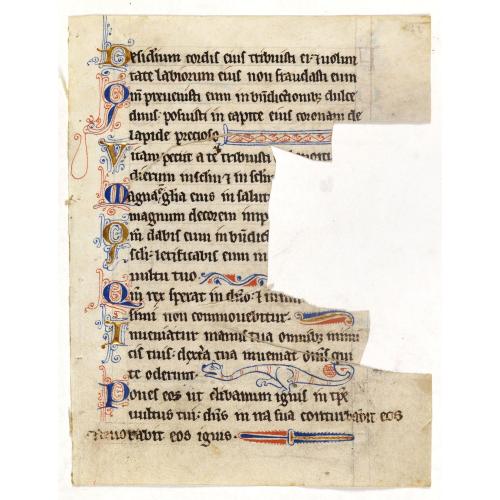 Desiderium cordis eius tribuisti ei: ⁊ uolun
tate labiorum eius non fraudasti eum
Qm preuenisti eum in bndictionibꝫ dulce
dinis: posuisti in capite eius coronam de
lapide precioso
Vitam petiit a te tribuisti
dierum in sclm ⁊ in sclm
Magna ē glia eius in saluta
magnum decorem inp
Qm dabis eum in bndic
scli: letificabis eum in
uultu tuo.
Qm rex sperat in dno: ⁊ in
simi non commouebitur.
Inueniatur manus tua omnibꝫ inimi
cis tuis: dextra tua inueniat om̄s qui
te oderunt.
Pones eos ut clibanum ignis in tp̄e
uultus tui: dn̄s in ira sua conturbabit eos
⁊ deuorabit eos ignis.